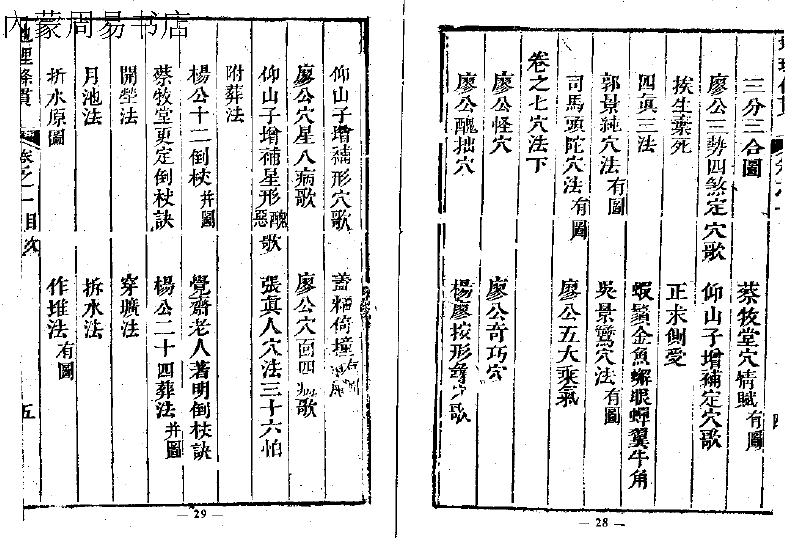 內蒙周易书店
三分三合圖
蔡牧堂穴情賦有圖
廖公三勢四煞定穴歌
仰山子增補定穴歌
挨生棄死
正求側受
四眞三法
蝦鬚金魚蠏眼蟬翼牛角
郭景純穴法有圖
吳景鸞穴法有圖
司馬頭陀穴法有圖
廖公五大乘氣
卷之七穴法下
廖公怪穴
廖公奇巧穴
廖公醜拙穴
楊廖按形穴歌
四
— 28 —
仰山子增補形穴歌
蓋粘倚撞
廖公穴星八病歌
廖公穴面四病歌
仰山子增補星形醜惡歌
張眞人穴法三十六怕
附葬法
楊公十二倒杖并圖
覺齋老人著明倒杖訣
蔡牧堂更定倒杖訣
楊公二十四葬法并圖
開塋法
穿壙法
月池法
拆水法
折水原圖
作堆法有圖
地理條貫
卷之一目次
五
— 29 —